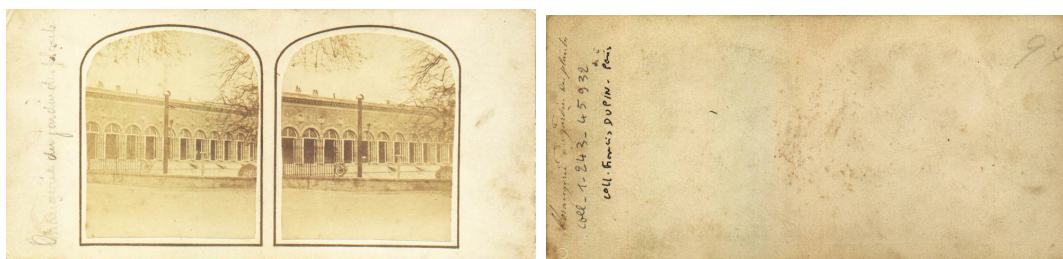 Orangerie du jardin des plantes
L'orangerie du jardin des plantes
coll-1-243-45932
coll. Francis DUPIN - Paris